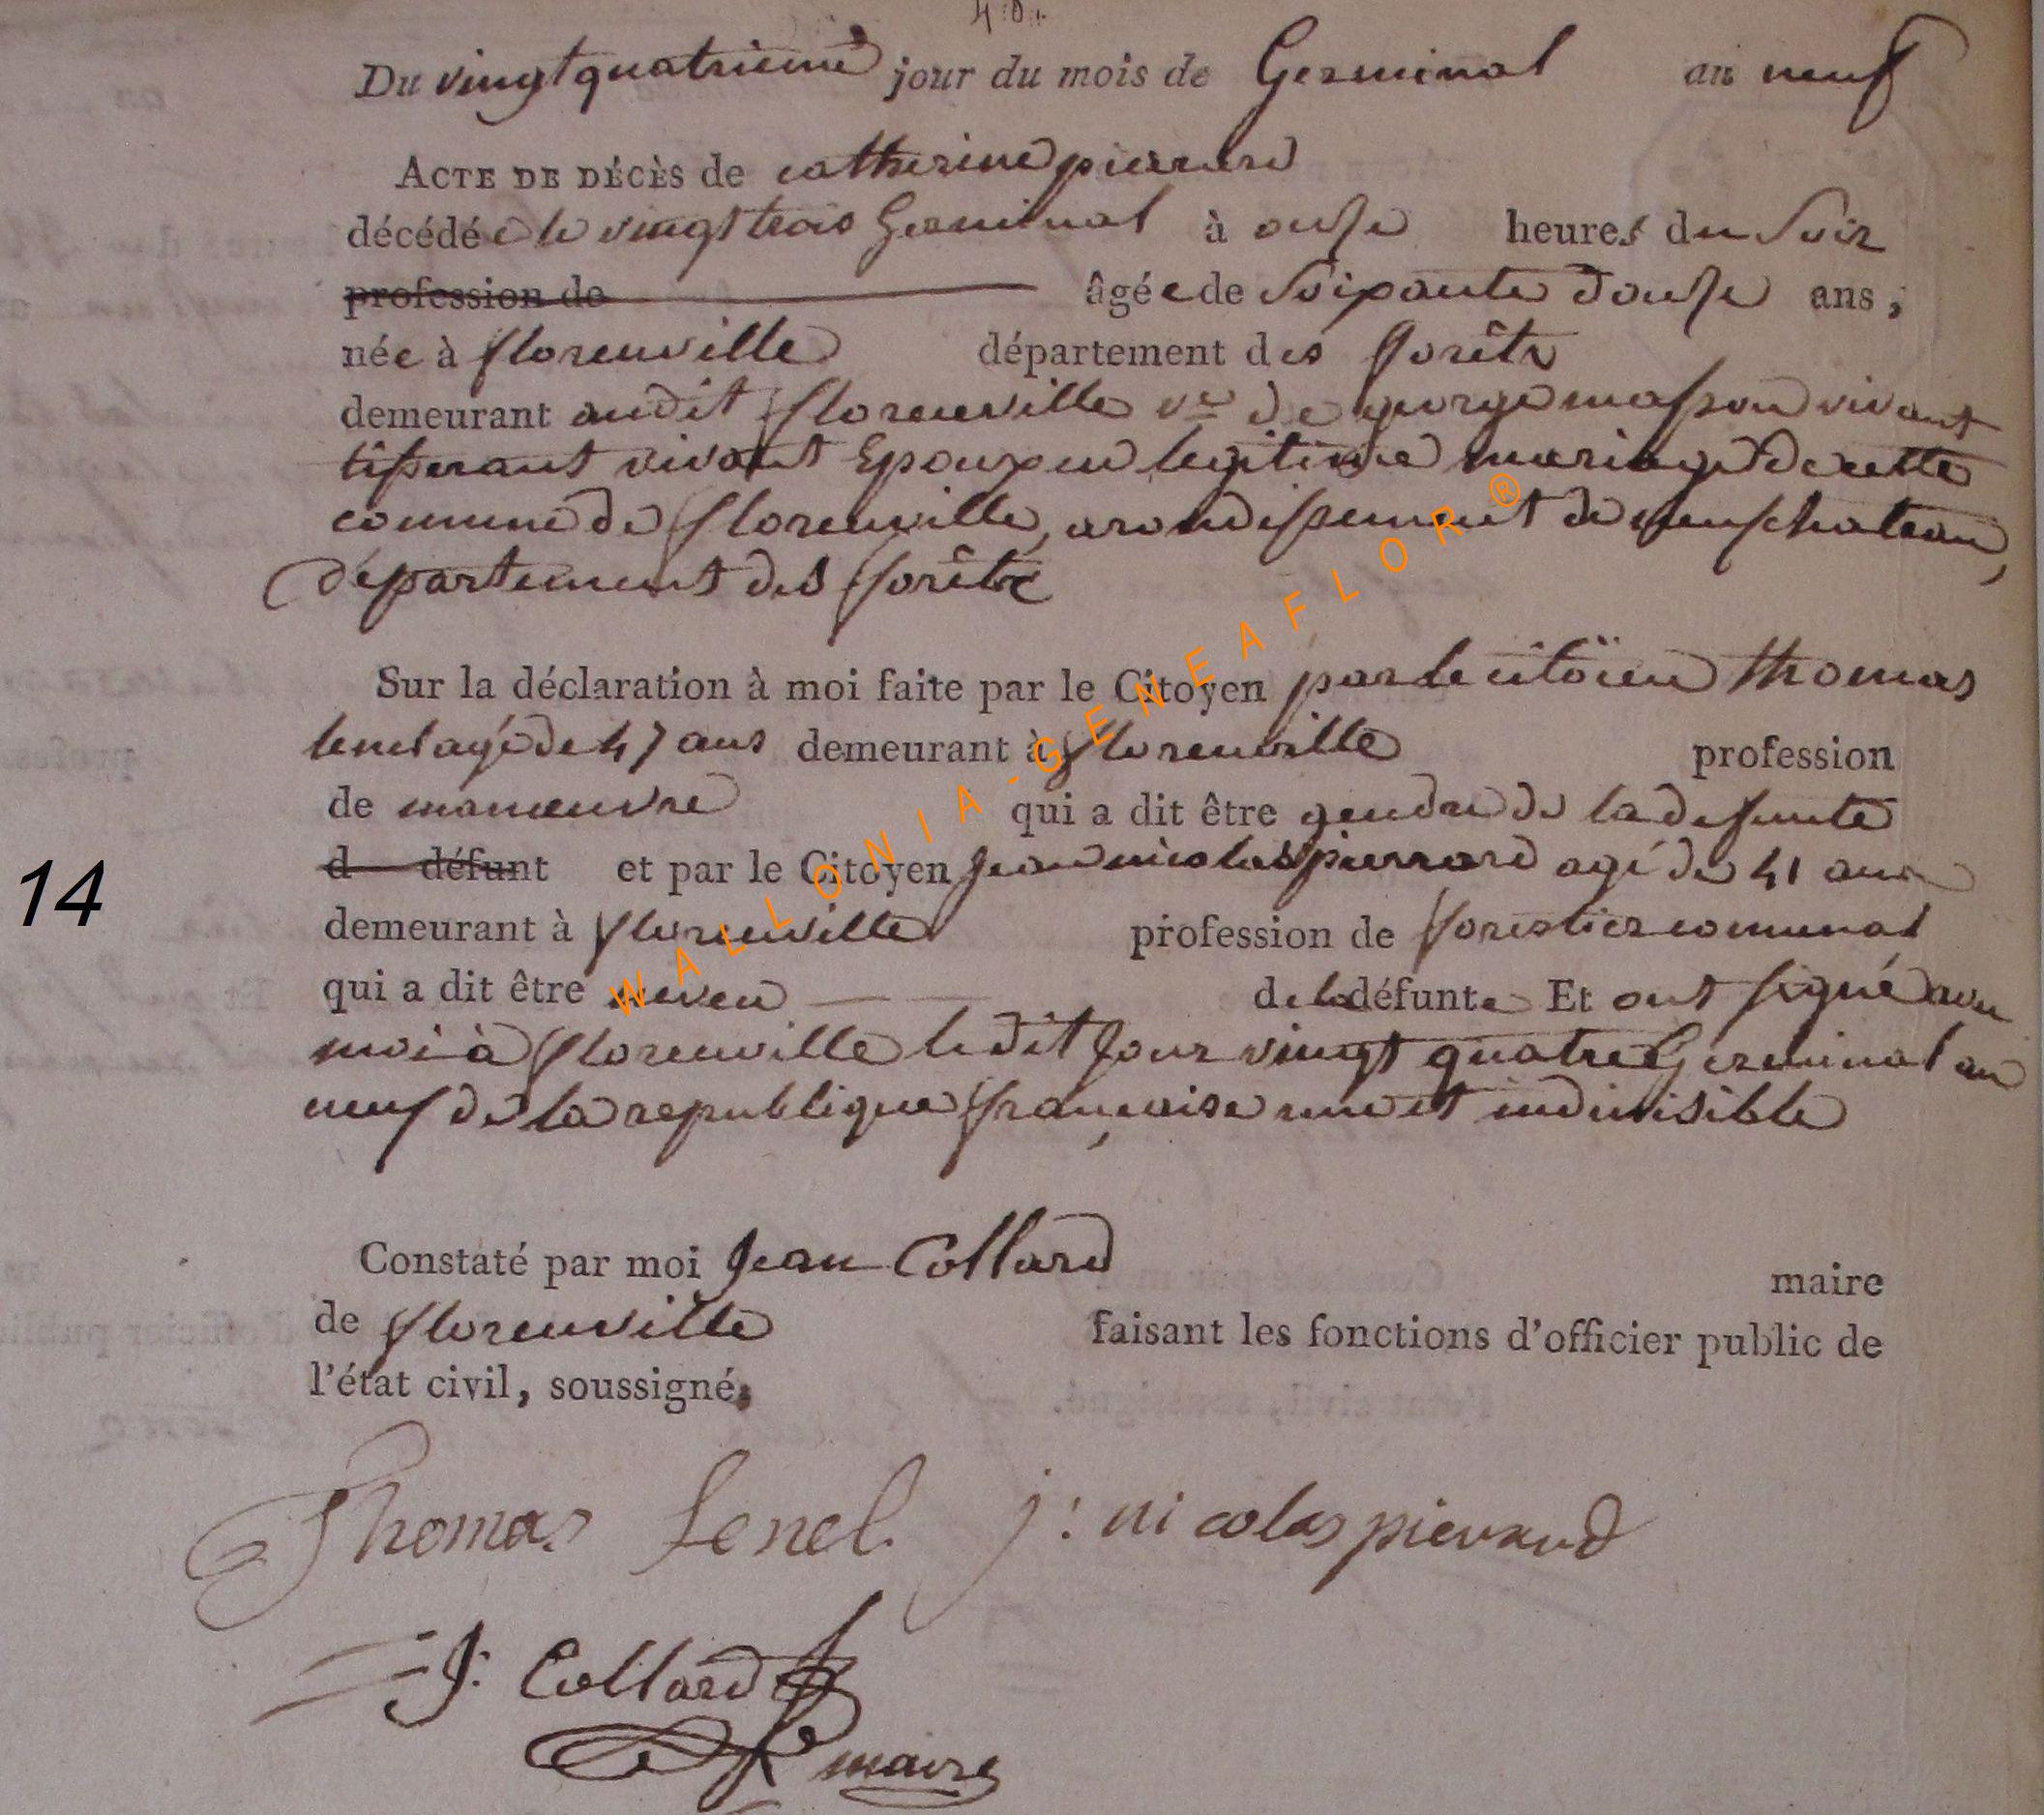 Du vingt quatrieme jour du mois de Germinal an neuf
ACTE DE DÉCÈS de catherine pierrard
décédée le vingt trois Germinal à onse heures du Soir
profession de âgée de Soixante douse ans,
née à florenville département des forêts
demeurant audit florenville ve de george masson vivant
tisserant vivant Epoux en legitime mariage de cette
comune de florenville, arondissement de neufchateau,
département des forêts
Sur la déclaration à moi faite par le Citoyen par le citöien thomas
lenel agé de 47 ans demeurant à florenville profession
de manœuvre qui a dit être gendre de la defunte
d défunt et par le Citoyen jean nicolas pierrard agé de 41 ans
demeurant à florenville profession de forestier comunal
qui a dit être neveu de la défunte Et ont signé avec
moi à florenville ledit jour vingt quatre Germinal an
neuf de la republique françoise une et indivisible
Constaté par moi Jean Collard maire
de florenville faisant les fonctions d'officier public de
l'état civil, soussigné.
Thomas Lenel. j: nicolas pierrard
J: Collard
maire
14
WALLONIA-GENEAFLOR®